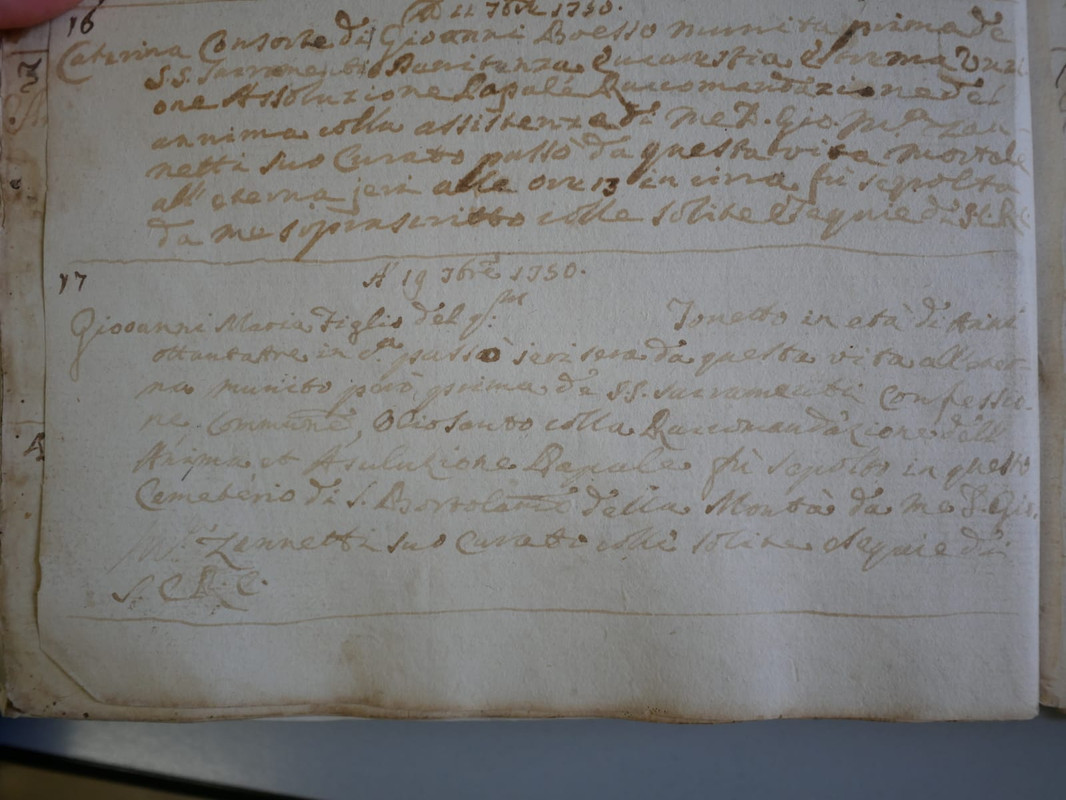 16
A 11 7bre 1750.
Caterina Consorte di Giovanni Boesso munita prima de
S.S. Sacramenti Penitenza Eucarestia Estrema Unzi
one Assoluzione Papale Raccomandazione del
annima colla assistenza di me D. Gio. Ma Zan-
netti suo Curato passò da questa vita mortale
all' eterna jeri alle ore 13 in circa fù sepolta
da me sopinscritto colle solite Esequie di S.
17
A' 19 7bre 1750.
Giovanni Maria Figlio del q. Tonetto in età di Anni
ottantatre in ca passò jeri sera da questa vita all' eter-
na munito però prima de S.S. Sacramenti Confessio-
ne, Commune, Oliosanto colla Raccomandazione dell'
Anima et Asoluzione Papale fù sepolto in questo
Cemeterio di S. Bortolameo della Montà da me D. Gio.
Ma Zannetti suo Curato colle solite esequie di
S. C. R. C.